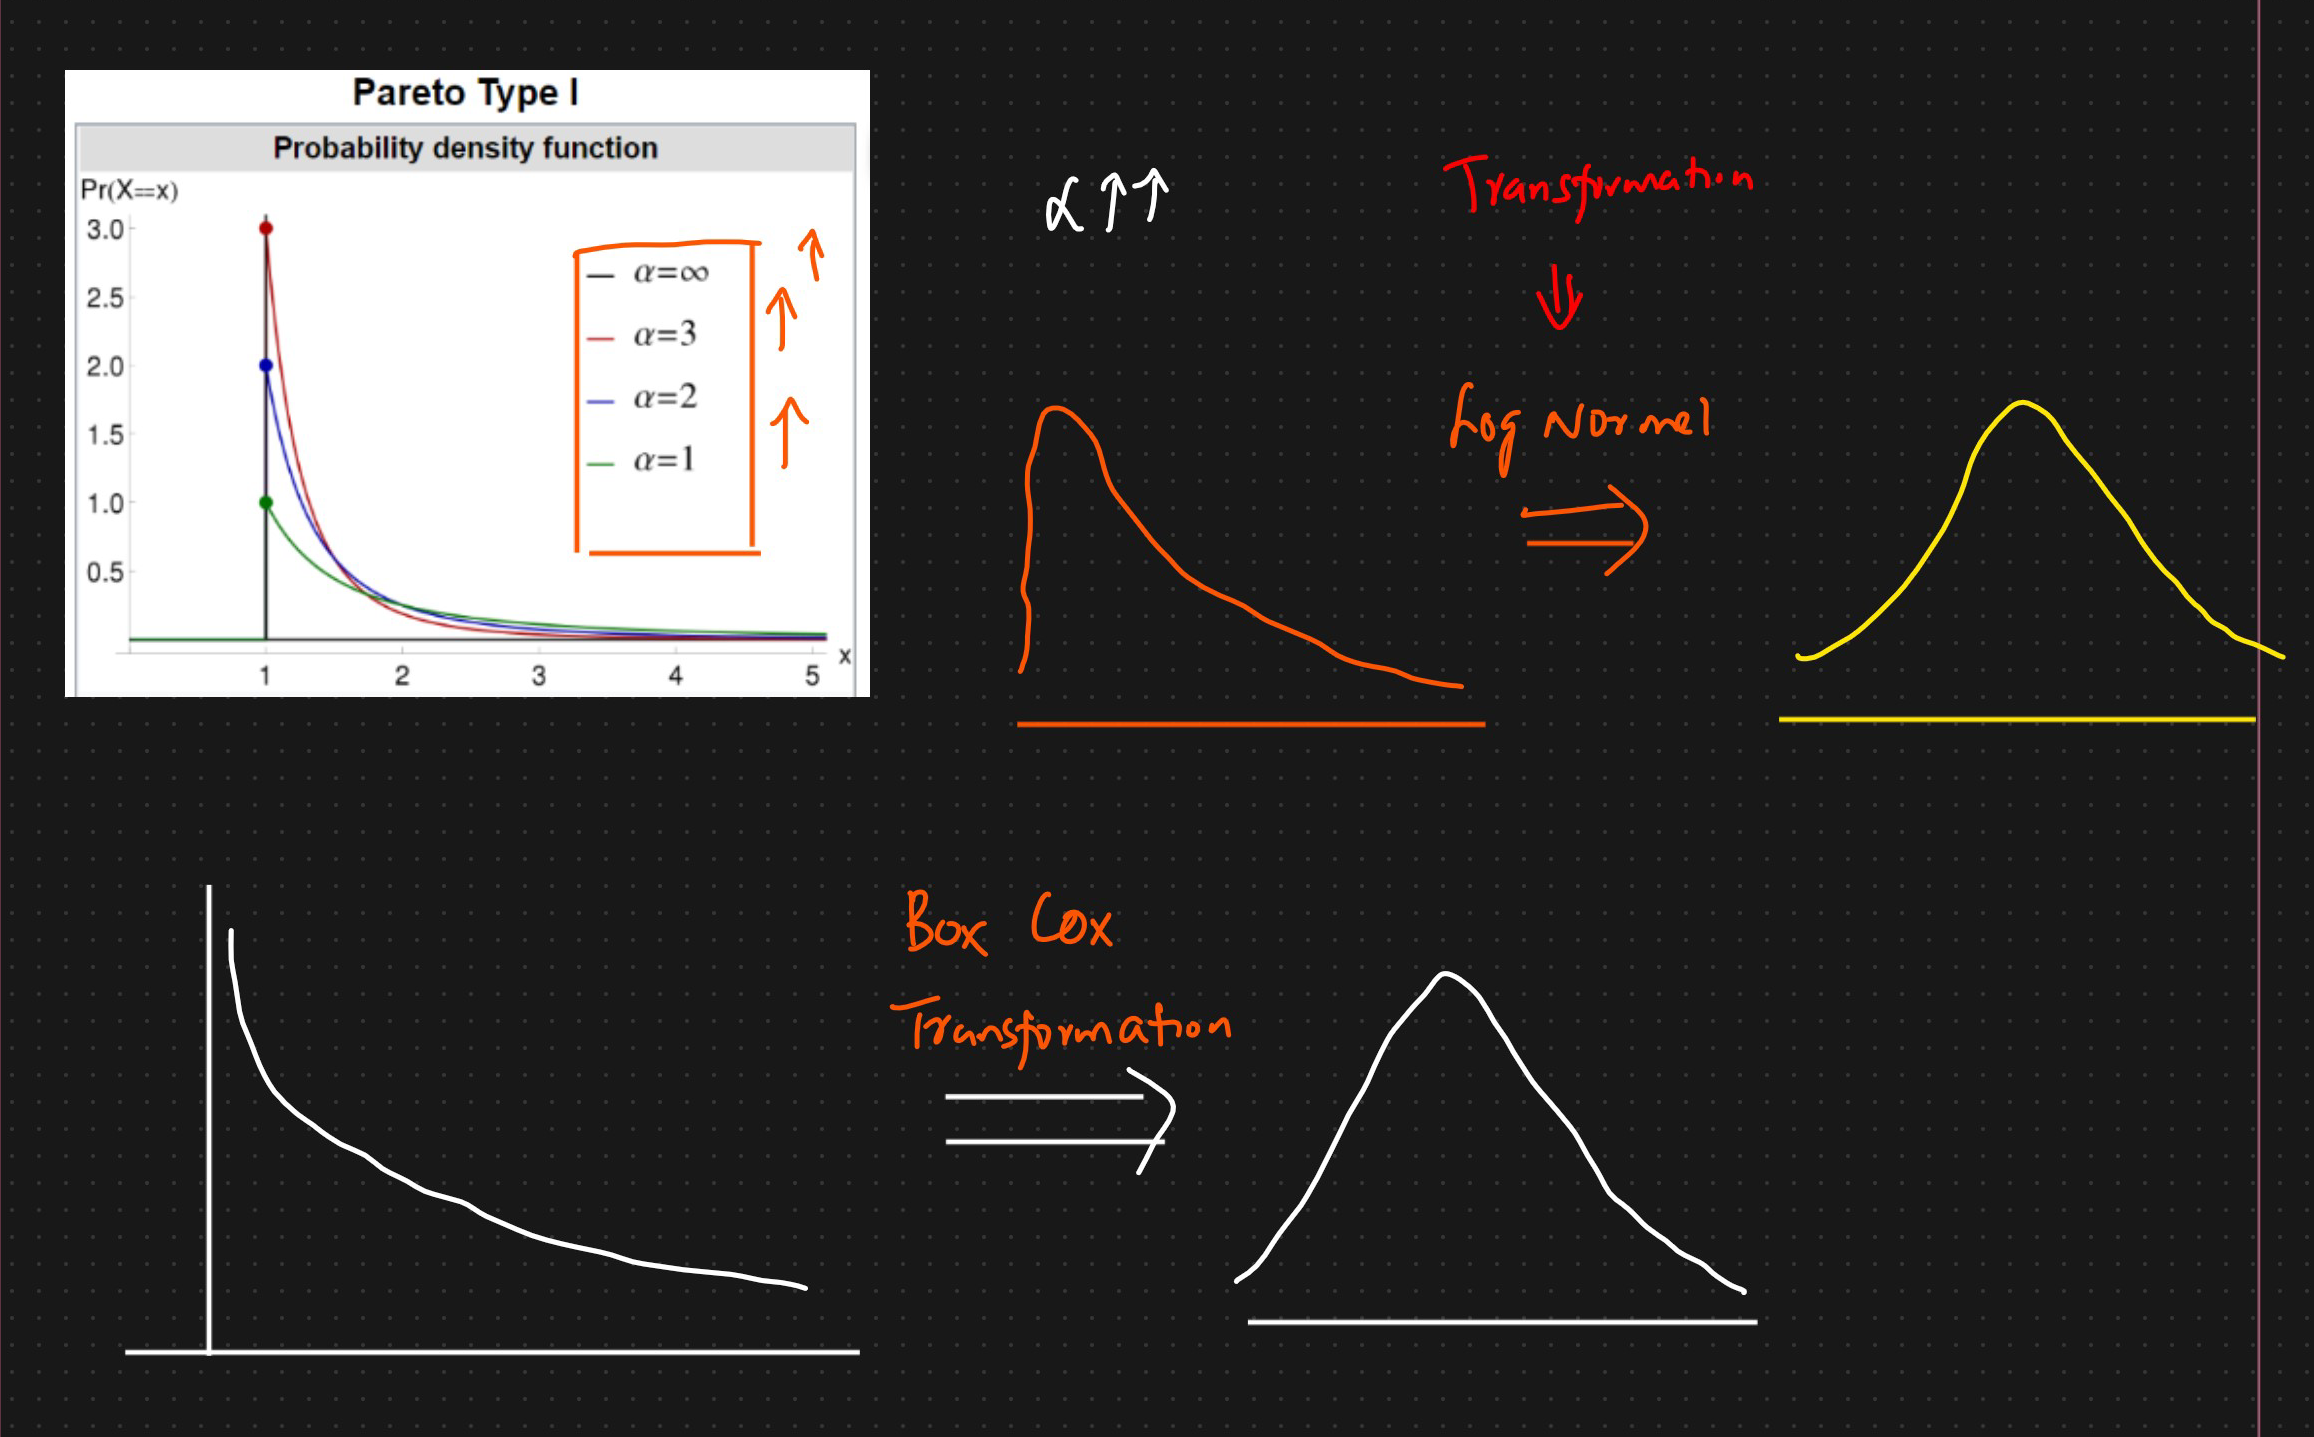 Pareto Type I
Probability density function
Pr(X==x)
3.0
2.5
2.0
1.5
1.0
0.5
1 2 3 4 5
x
α=∞
α=3
α=2
α=1
α ↑↑
Transformation
Log Normal
Box Cox
Transformation